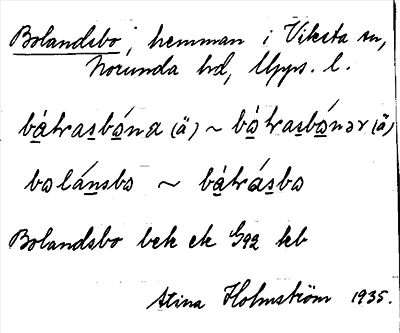 Bolandsbo, hemman i Viksta sn,
Norunda hd, Upps. l.
bátrasbóna (ä) ~ bótrasbónər (ä)
bolánsbo ~ bátrásbo
Bolandsbo bek ek G92 kb
Stina Holmström 1935.